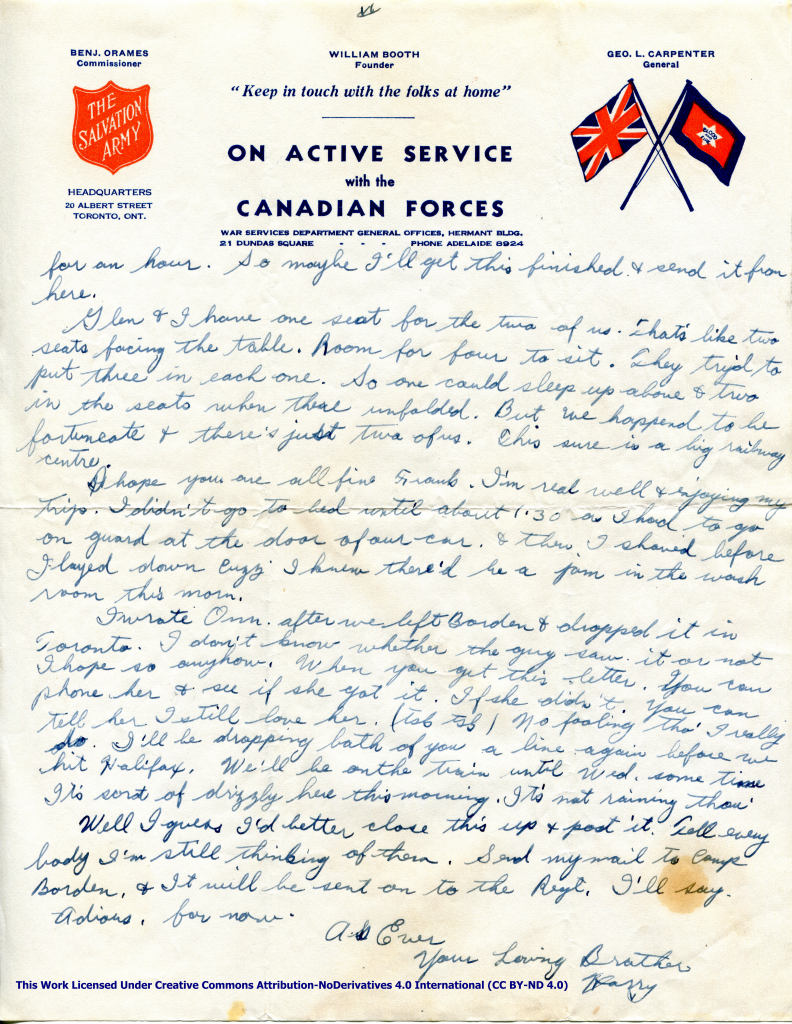 BENJ. ORAMES
Commissioner
WILLIAM BOOTH
Founder
GEO. L. CARPENTER
General
THE
SALVATION
ARMY
"Keep in touch with the folks at home"
ON ACTIVE SERVICE
with the
CANADIAN FORCES
HEADQUARTERS
20 ALBERT STREET
TORONTO, ONT.
WAR SERVICES DEPARTMENT GENERAL OFFICES, HERMANT BLDG.
21 DUNDAS SQUARE - - - PHONE ADELAIDE 8924
for an hour. So maybe I'll get this finished & send it from
here.
Glen & I have one seat for the two of us. That's like two
seats facing the table. Room for four to sit. They try'd to
put three in each one. So one could sleep up above & two
in the seats when there unfolded. But we happend to be
fortuneate & there's just two of us. This sure is a big railway
centre.
I hope you are all fine Frank. I'm real well & enjoying my
trip. I didn't go to bed until about 1:30 as I had to go
on guard at the door of our car. & then I shaved before
I layed down cuzz I knew there'd be a jam in the wash
room this morn.
I wrote Onn. after we left Borden & dropped it in
Toronto. I don't know whether the guy saw it or not
I hope so anyhow. When you get this letter. You can
phone her & see if she got it. If she didn't. You can
tell her I still love her. (Tsb Tsb) No fooling tho' I really
do. I'll be dropping both of you a line again before we
hit Halifax. We'll be on the train until Wed. some time
It's sort of drizzly here this morning. It's not raining thou'
Well I guess I'd better close this up & post it. Tell every
body I'm still thinking of them. Send my mail to Camp
Borden, & It will be sent on to the Regt. I'll say.
Adious. for now.
As Ever
Your Loving Brother
Harry
This Work Licensed Under Creative Commons Attribution-NoDerivatives 4.0 International (CC BY-ND 4.0)